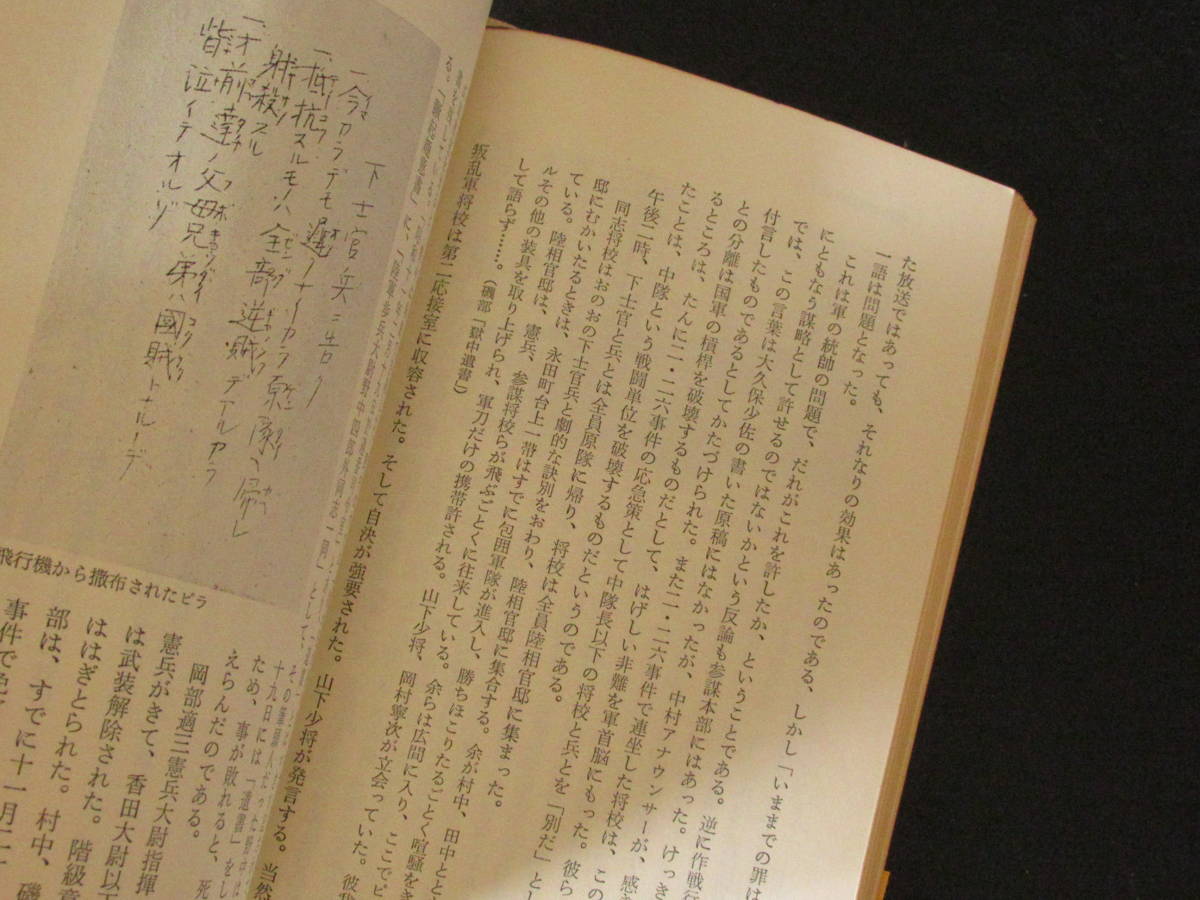 た放送ではあっても、それなりの効果はあったのである、しかし「いままでの罪は
一語は問題となった。
これは軍の統帥の問題で、だれがこれを許したか、ということである。逆に作戦行
にともなう謀略として許せるのではないかという反論も参謀本部にはあった。けっき
では、この言葉は大久保少佐の書いた原稿にはなかったが、中村アナウンサーが、感
付言したものであるとしてかたづけられた。また二・二六事件で連坐した将校は、この
との分離は国軍の槓桿を破壊するものだとして、はげしい非難を軍首脳にもった。彼ら
るところは、たんに二・二六事件の応急策として中隊長以下の将校と兵とを「別だ」とし
たことは、中隊という戦闘単位を破壊するものだというのである。
午後二時、下士官と兵とは全員原隊に帰り、将校は全員陸相官邸に集まった。
同志将校はおのおの下士官兵と劇的な訣別をおわり、陸相官邸に集合する。余が村中、田中とと
邸にむかいたるときは、永田町台上一帯はすでに包囲軍隊が進入し、勝ちほこりたるごとく喧騒をき
ている。陸相官邸は、憲兵、参謀将校らが飛ぶごとくに往来している。余らは広間に入り、ここでピ
ルその他の装具を取り上げられ、軍刀だけの携帯許される。山下少将、岡村寧次が立会っていた。彼我
して語らず……。(磯部「獄中遺書」)
叛乱軍将校は第二応接室に収容された。そして自決が強要された。山下少将が発言する。当然
下士官兵ニ告グ
一、今カラデモ遅クナイカラ原隊ヘ帰レ
一、抵抗スルモノハ全部逆賊デアルカラ
射殺スル
一、オ前達ノ父母兄弟ハ國賊トナルノデ
皆泣イテオルゾ
飛行機から撒布されたビラ
十九日には「遺書」をし
ため、事が敗れると、死
えらんだのである。
岡部適三憲兵大尉以下
憲兵がきて、香田大尉指揮
は武装解除された。階級章
ははぎとられた。村中、磯
部は、すでに十一月二
事件で免